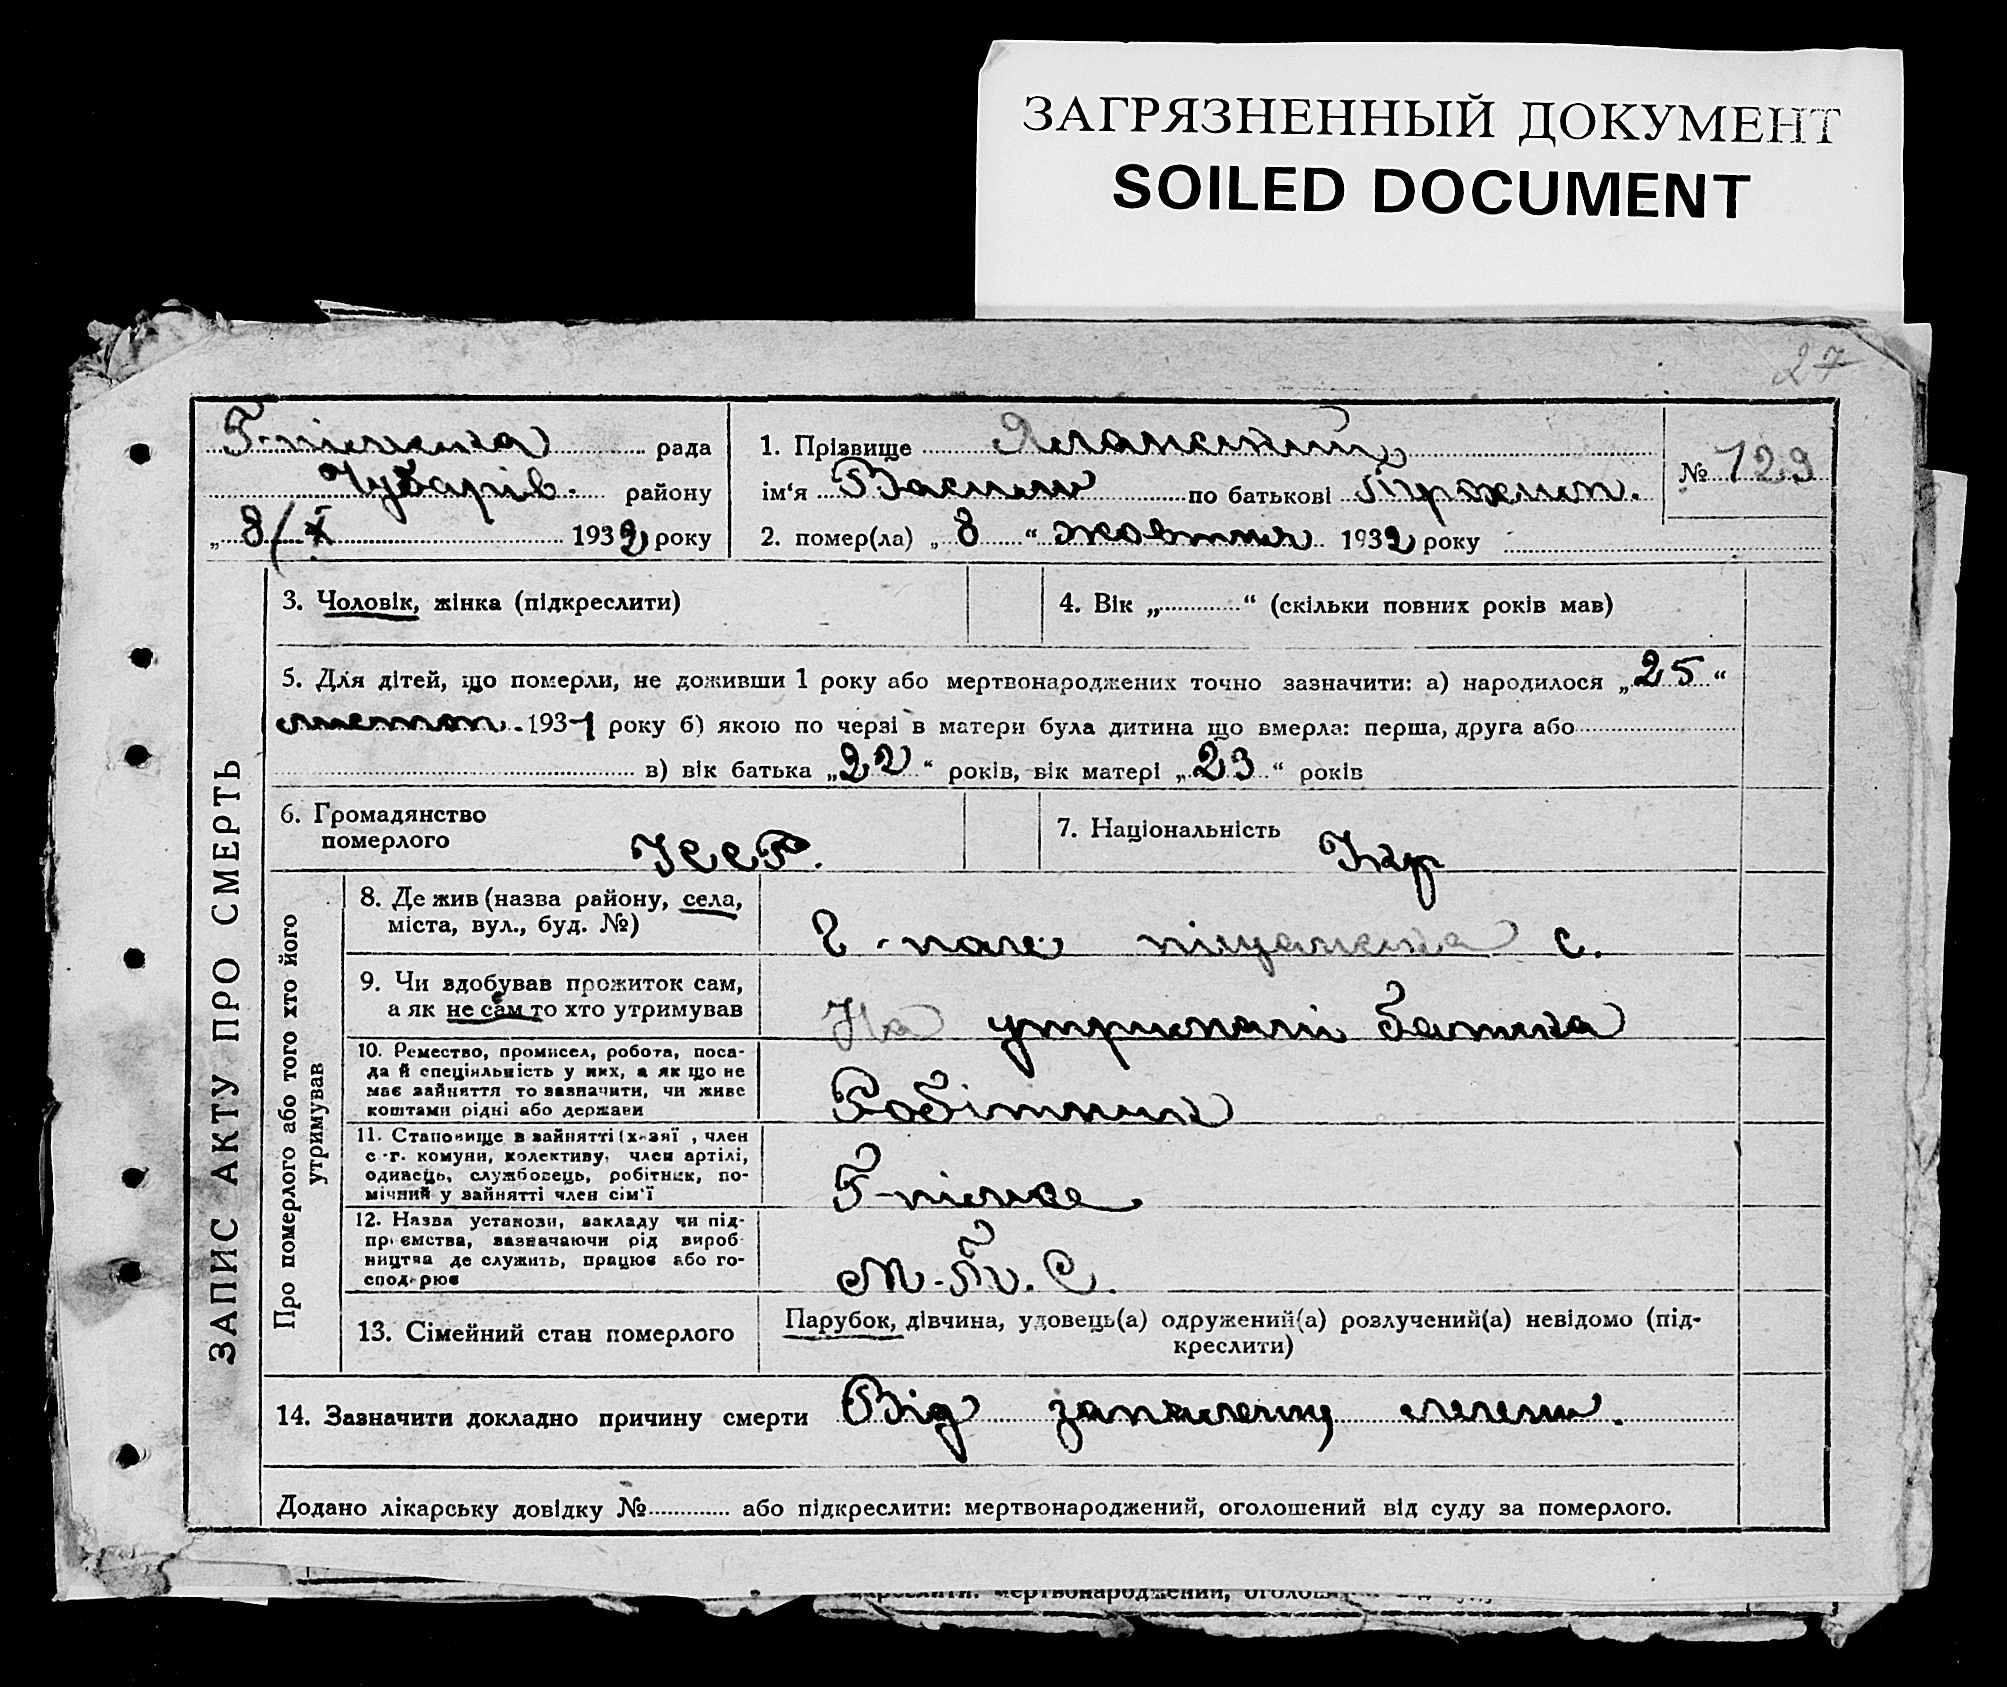 ЗАГРЯЗНЕННЫЙ ДОКУМЕНТ
SOILED DOCUMENT
27
рада
Чубарів. району
„ 8/X 1932 року
1. Прізвище
ім‘я Василь по батькові
№ 129
2. помер(ла) „ 8 “ жовтня 1932 року
ЗАПИС АКТУ ПРО СМЕРТЬ
3. Чоловік, жінка (підкреслити)
4. Вік „ “ (скільки повних років мав)
5. Для дітей, що померли, не доживши 1 року або мертвонароджених точно зазначити: а) народилося „ 25 “
листоп. 1931 року б) якою по черзі в матери була дитина що вмерла: перша, друга або
в) вік батька „ 22 “ років, вік матері „ 23 “ років
6. Громадянство
померлого УССР.
7. Національність Укр
Про померлого або того хто його
утримував
8. Де жив (назва району, села,
міста, вул., буд. №)
Г-поле с.
9. Чи здобував прожиток сам,
а як не сам то хто утримував
На утриманні батька
10. Ремество, промисел, робота, поса-
да й спеціяльність у них, а як що не
має зайняття то зазначити, чи живе
коштами рідні або держави
Робітник
11. Становище в зайнятті (х-зяї , член
с.-г. комуни, колективу, член артілі,
одинець, службовець, робітник, по-
мічний у зайнятті член сім‘ї
12. Назва установи, закладу чи під-
приємства, зазначаючи рід вироб-
ництва де служить, працює або го-
сподарює
М.Т.С.
13. Сімейний стан померлого
Парубок, дівчина, удовець(а) одружений(а) розлучений(а) невідомо (під-
креслити)
14. Зазначити докладно причину смерти Від запалення легень.
Додано лікарську довідку № або підкреслити: мертвонароджений, оголошений від суду за померлого.
мертвонароджений,